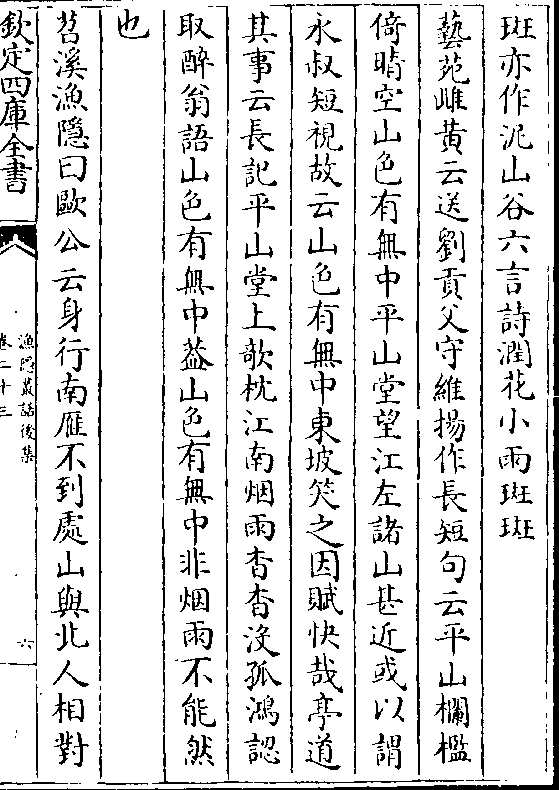 斑亦作泥山谷六言詩潤花小雨斑斑
藝苑雌黄云送劉貢父守維揚作長短句云平山欄檻
倚晴空山色有無中平山堂望江左諸山甚近或以謂
永叔短視故云山色有無中東坡笑之因賦快哉亭道
其事云長記平山堂上欹枕江南烟雨杳杳没孤鴻認
取醉翁語山色有無中葢山色有無中非烟雨不能然
也
苕溪漁隱曰歐公云身行南雁不到處山與北人相對
欽定四庫全書
漁隱叢話後集
卷二十三
六